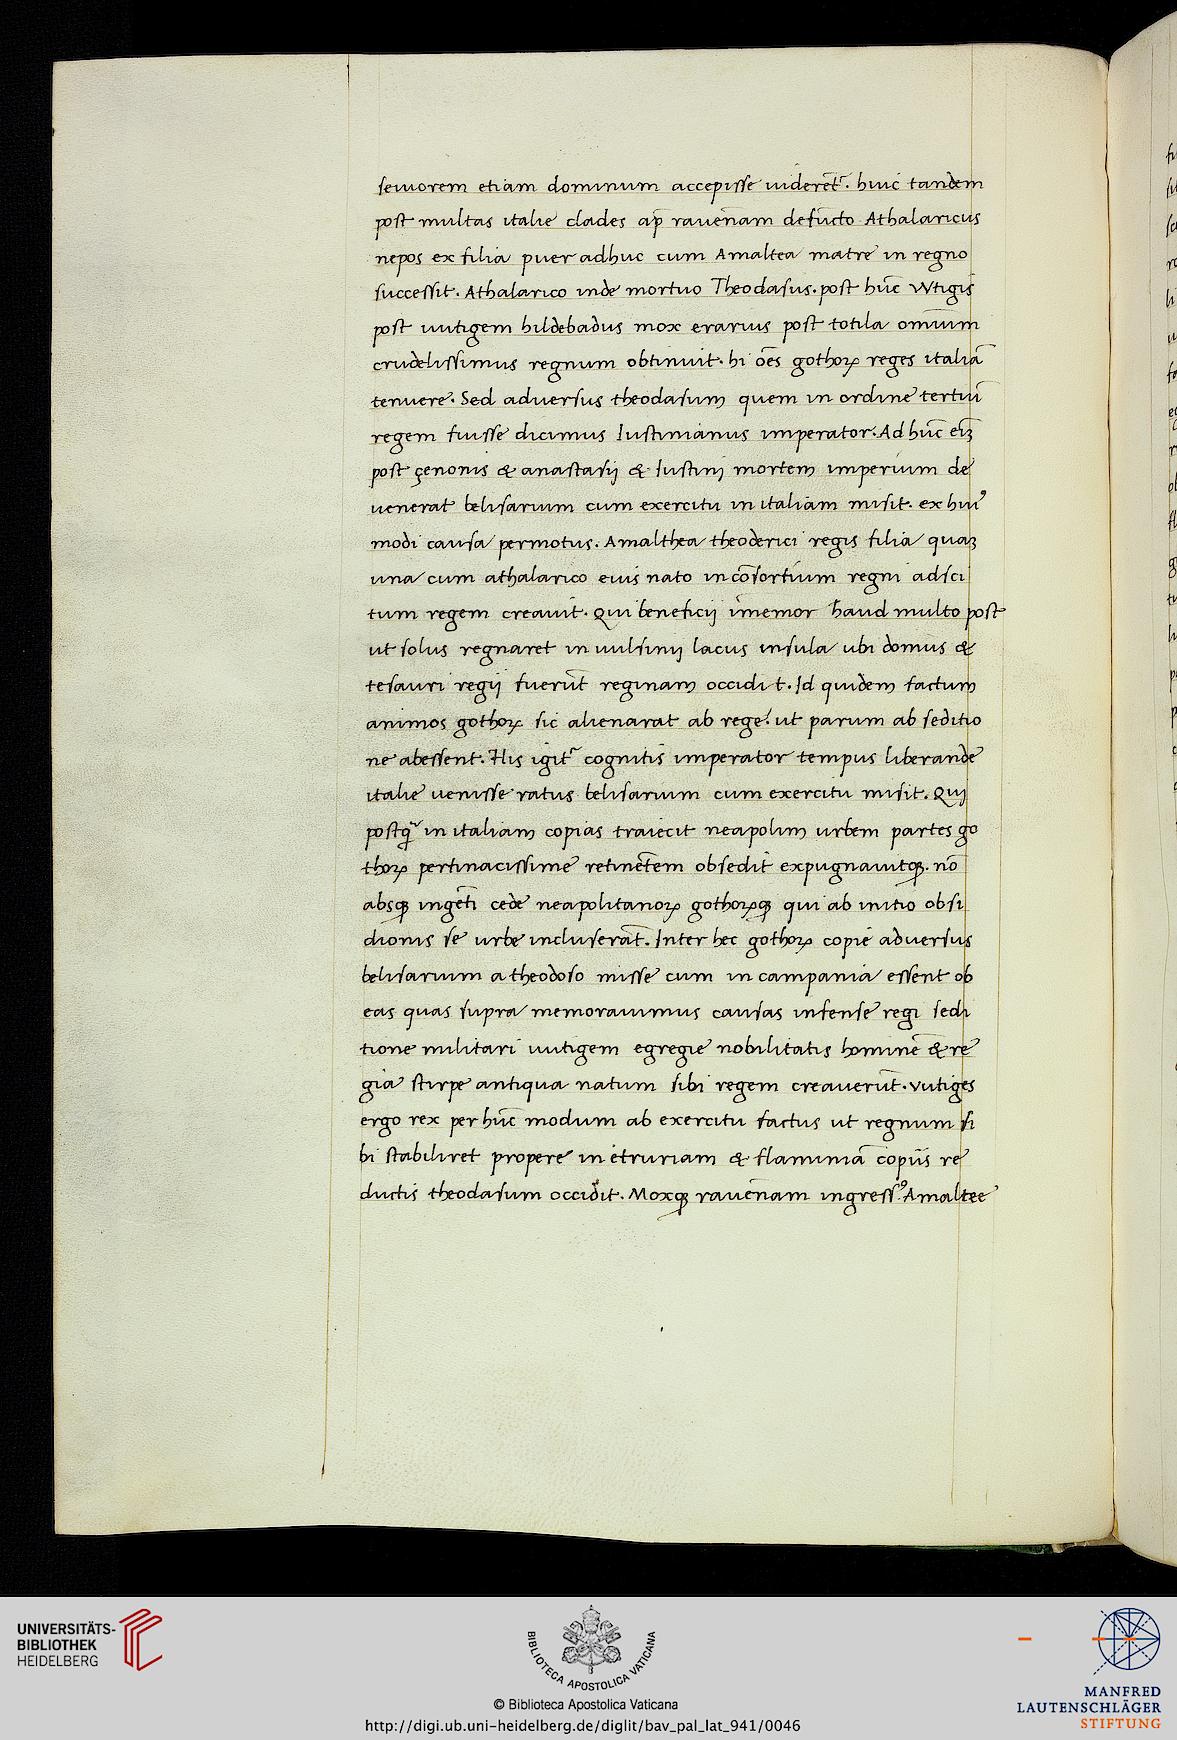 seuiorem etiam dominum accepisse uideret᷑. huic tandem
post multas italie clades ap̄ rauen̄am defūcto Athalaricus
nepos ex filia puer adhuc cum Amaltea matre in regno
successit. Athalarico inde mortuo Theodasus. post hūc Vvtigis
post uutigem hildebadus mox erarius post totila omīum
crudelissimus regnum obtinuit. hi oēs gothoꝝ reges italiā
tenuere. Sed aduersus theodasum quem in ordine tertiū
regem fuisse dicimus Iustinianus imperator. Ad hūc eīꝫ
post çenonis & anastasij & Iustinj mortem imperium de
uenerat belisarium cum exercitu in italiam misit. ex huiꝰ
modi causa permotus. Amalthea theoderici regis filia quaꝫ
una cum athalarico eius nato in cōsortium regni adsci
tum regem creauit. Qui beneficij īmemor haud multo post
ut solus regnaret in uulsinij lacus insula ubi domus &
tesauri regij fuerūt reginam occidit. Id quidem factum
animos gothoꝝ sic alienarat ab rege. ut parum ab seditio
ne abessent. His igit᷑ cognitis imperator tempus liberande
italie uenisse ratus belisarium cum exercitu misit. Quj
postq̄ in italiam copias traiecit neapolim urbem partes go
thoꝝ pertinacissime retinētem obsedit expugnauitqꝫ. nō
absqꝫ ingēti cede neapolitanoꝝ gothoꝝqꝫ qui ab initio obsi
dionis se urbe incluserāt. Inter hec gothoꝝ copie aduersus
belisarium a theodoso misse cum in campania essent ob
eas quas supra memorauimus causas infense regi sedi
tione militari uutigem egregie nobilitatis hominē & re
gia stirpe antiqua natum sibi regem creauerūt. Vutiges
ergo rex per hūc modum ab exercitu factus ut regnum si
bi stabiliret propere in etruriam & flaminiā copijs re
ductis theodasum occidit. Moxqꝫ rauen̄am ingressꝰ. Amaltee
UNIVERSITÄTS-
BIBLIOTHEK
HEIDELBERG
BIBLIOTECA APOSTOLICA VATICANA
© Biblioteca Apostolica Vaticana
http://digi.ub.uni-heidelberg.de/diglit/bav_pal_lat_941/0046
MANFRED
LAUTENSCHLÄGER
STIFTUNG